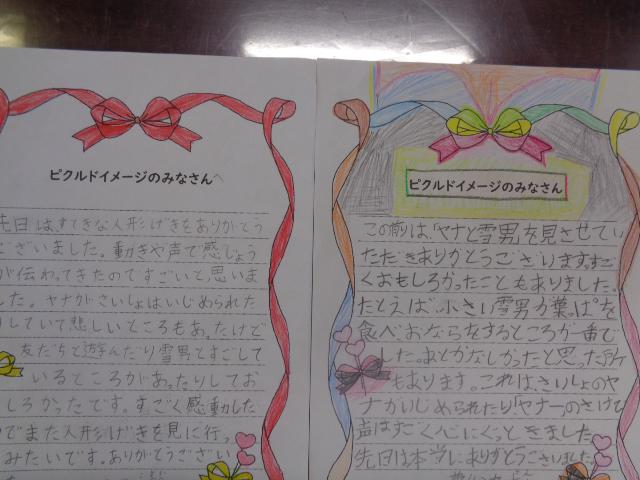 ピクルドイメージのみなさんへ
先日はすてきな人形げきをありがとう
ございました。動きや声で感じょう
が伝わってきたのですごいと思いま
した。ヤナがさいしょはいじめられた
りしていて悲しいところもあったけど
友だちと遊んだり雪男とすごして
いるところがあったりしてお
もしろかったです。すごく感動した
のでまた人形げきを見に行っ
みたいです。ありがとうござい
ピクルドイメージのみなさん
この前は「ヤナと雪男」を見させてい
ただきありがとうございます。すご
くおもしろかったこともありました。
たとえば、小さい雪男が葉っぱを
食べ、おならをするところが一番で
した。あとかなしかったと思った所
もあります。これはさいしょのヤ
ナがいじめられたり「ヤナー」のさけび
声はすごく心にぐっときました。
先日は本当にありがとうございました